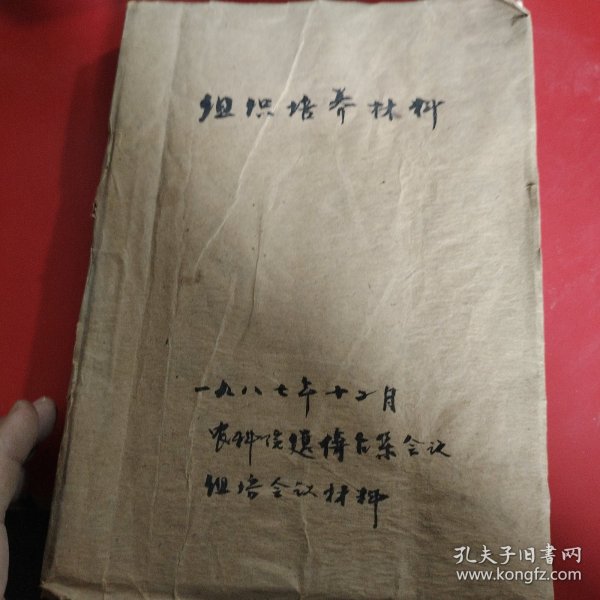 组织培养材料
一九八七年十二月
农科院遗传育种会议
组培会议材料
孔夫子旧书网
www.kongfz.com